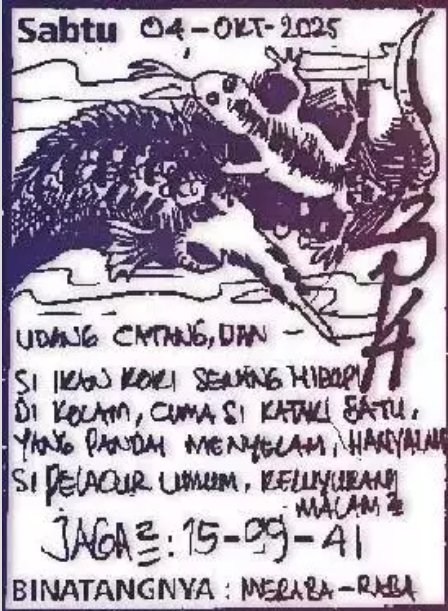 Sabtu 04-OKT-2025
UDANG CATANG, DAN
SI IKAN KOKI SENANG HIDUP
DI KOLAM, CUMA SI KATAK SATU.
YANG PANDAI MENYELAM, HANYALAH
SI PELACUR UMUM, KELUYURAN
MALAM2
JAGA2: 15-99-41
BINATANGNYA : MERABA-RABA